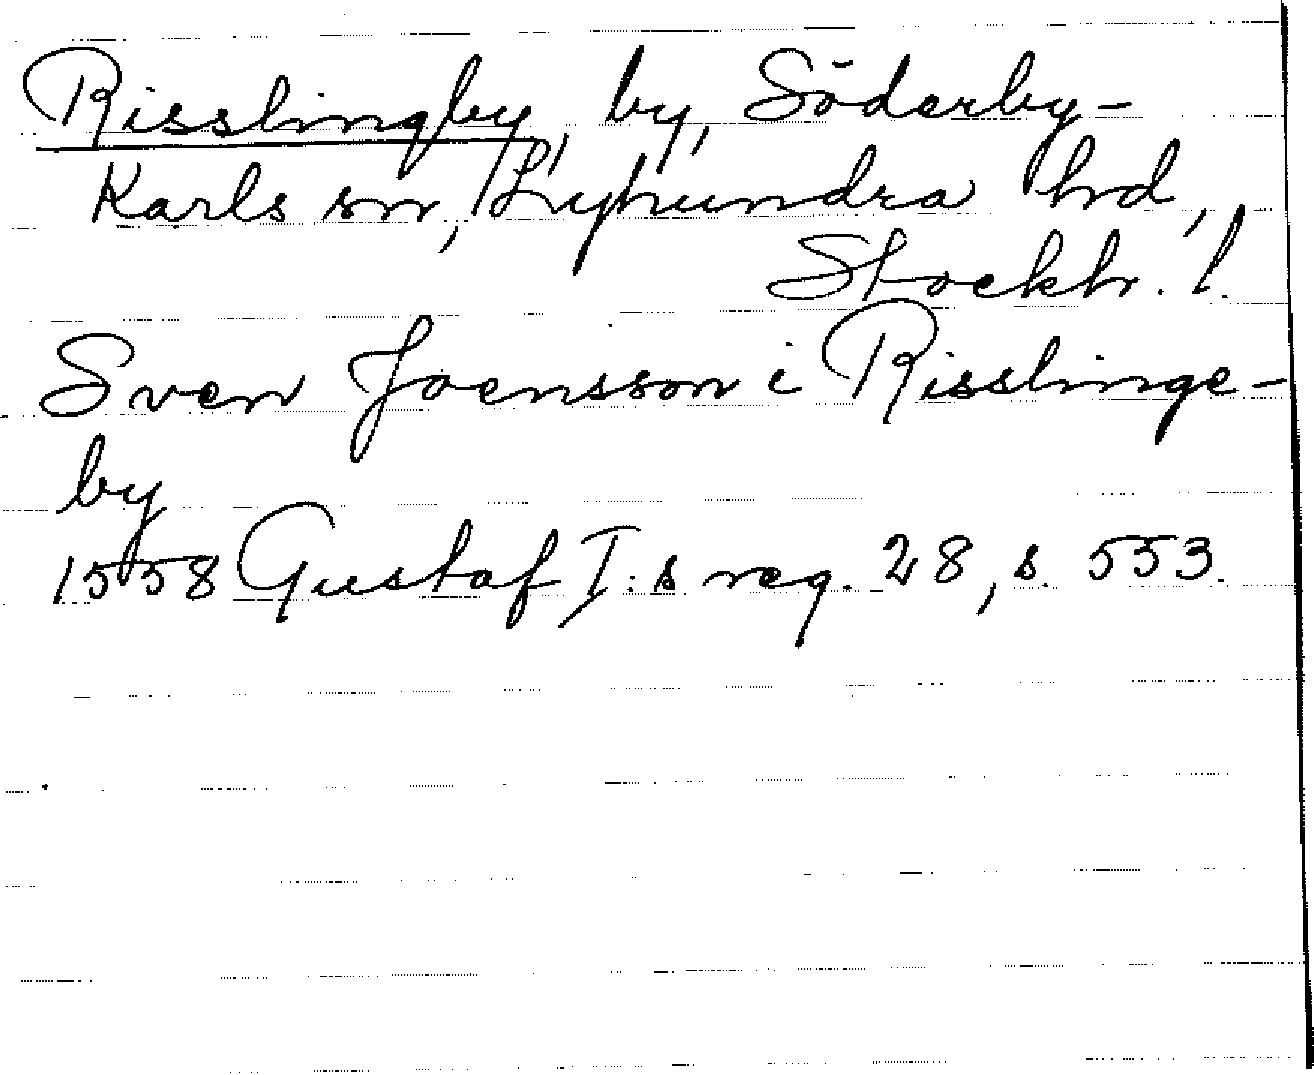 Risslingby, by, Söderby-
Karls sn, Lyhundra hd,
Stockh. l.
Sven Joensson i Risslinge-
by
1558 Gustaf I:s reg. 28, s. 553.